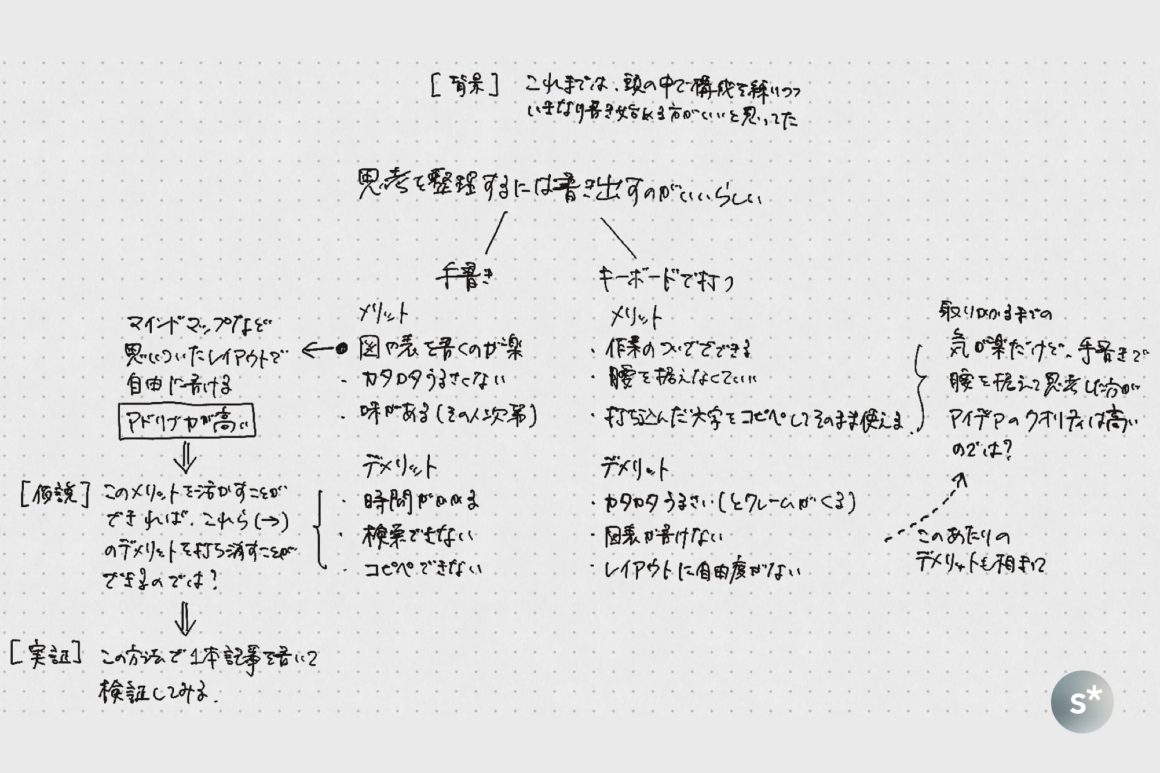 [背景] これまでは、頭の中で構成を練りつつ
いきなり書き始める方がいいと思ってた
思考を整理するには書き出すのがいいらしい
手書き
メリット
・図や表を書くのが楽
・カタカタうるさくない
・味がある(その人次第)
デメリット
・時間がかかる
・検索できない
・コピペできない
キーボードで打つ
メリット
・作業のついでできる
・腰を据えなくていい
・打ち込んだ文字をコピペしてそのまま使える
デメリット
・カタカタうるさい(とクレームがくる)
・図表が書けない
・レイアウトに自由度がない
マインドマップなど
思いついたレイアウトで
自由に書ける
アドリブ力が高い
[仮説] このメリットを活かすことが
できれば、これら(→)
のデメリットを打ち消すことが
できるのでは?
[実証] この方法で1本記事を書いて
検証してみる.
取りかかるまでの
気が楽だけど、手書きで
腰を据えて思考した方が
アイデアのクオリティは高い
のでは?
このあたりの
デメリットも相まって
s*